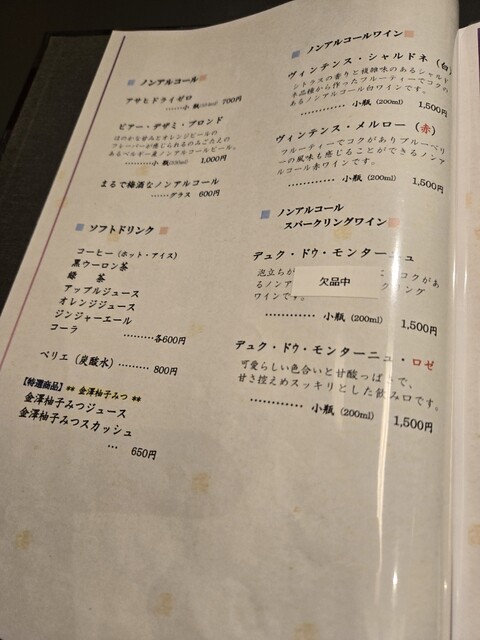 ノンアルコール
アサヒドライゼロ
……小瓶(334ml) 700円
ピアー・デザミ・ブロンド
ほのかな甘みとオレンジピールの
フレーバーが感じられるのみごたえの
あるベルギー産ノンアルコールビール。
…………小瓶 1,000円
まるで梅酒なノンアルコール
……グラス 600円
ソフトドリンク
コーヒー(ホット・アイス)
黒ウーロン茶
緑 茶
アップルジュース
オレンジジュース
ジンジャーエール
コーラ
………各600円
ペリエ(炭酸水)……… 800円
【特選商品】** 金澤柚子みつ **
金澤柚子みつジュース
金澤柚子みつスカッシュ
… 650円
ノンアルコールワイン
ヴィンテンス・シャルドネ(白)
シトラスの香りと複雑味のあるシャルド
ネ品種から作ったフルーティーでコクの
あるノンアルコール白ワインです。
………… 小瓶 (200ml) 1,500円
ヴィンテンス・メルロー(赤)
フルーティーでコクがありブルーベリ
ーの風味も感じることができるノンア
ルコール赤ワインです。
………… 小瓶 (200ml) 1,500円
ノンアルコール
スパークリングワイン
デュク・ドゥ・モンターニュ
泡立ちが コクがあ
るノンア クリング
ワインです。
欠品中
………… 小瓶 (200ml) 1,500円
デュク・ドゥ・モンターニュ・ロゼ
可愛らしい色合いと甘酸っぱさで、
甘さ控えめスッキリとした飲み口です。
………… 小瓶 (200ml) 1,500円